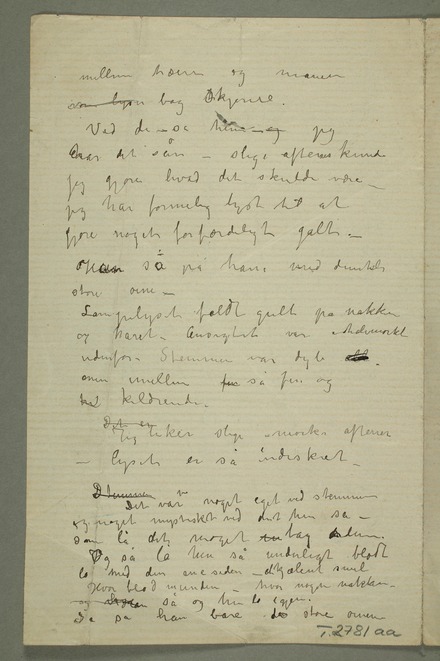 mellem hænn og manen
bag Skjerne.
Vad de – så – jeg
Var det sån – slige aftener kunde
jeg gjøre hvad det skulde være –
jeg har formelig lyst til at
gjøre noget forfærdeligt galt –
så på hans med dunkle
store øine –
Lampelyset faldt gult på nakken
og håret – Ansigtet var
udenfor – Stemmen var dyb
men imellem så fin og
kildrende –
Det er
Jeg liker slige mørke aftener
– lyset er så indiskret –
Stemmen
Det var noget eget ved stemmen
og noget mystiskt ved det hun sa –
som lå det noget bag
Og så lo hun så underligt blødt
lo med den ene siden – smil
Hvor blød munden – hvor nakken –
og så og hun lo igjen.
Da så han bare de store øinene
T.2781aa